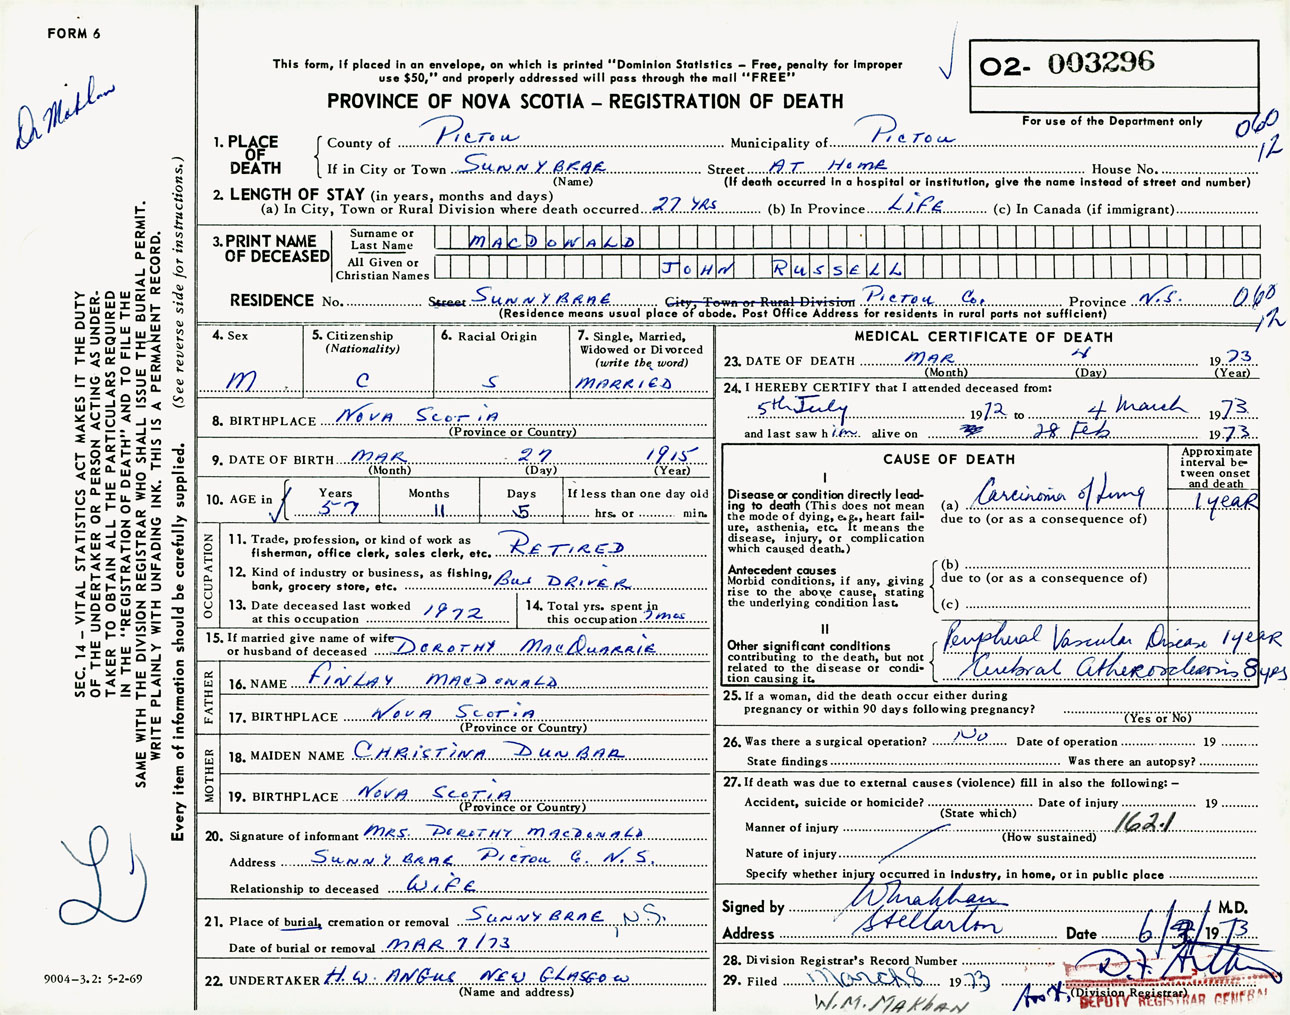 FORM 6
Dr Makhan
This form, if placed in an envelope, on which is printed "Dominion Statistics – Free, penalty for improper
use $50," and properly addressed will pass through the mail "FREE"
PROVINCE OF NOVA SCOTIA – REGISTRATION OF DEATH
O2- 003296
For use of the Department only
060
12
1. PLACE OF DEATH
County of Pictou Municipality of Pictou
If in City or Town Sunnybrae Street At Home House No.
(Name) (If death occurred in a hospital or institution, give the name instead of street and number)
2. LENGTH OF STAY (in years, months and days)
(a) In City, Town or Rural Division where death occurred 27 yrs (b) In Province Life (c) In Canada (if immigrant)
3. PRINT NAME OF DECEASED
Surname or Last Name MACDONALD
All Given or Christian Names JOHN RUSSELL
RESIDENCE No. Street Sunnybrae City, Town or Rural Division Pictou Co. Province N.S.
060
12
(Residence means usual place of abode. Post Office Address for residents in rural parts not sufficient)
4. Sex M
5. Citizenship (Nationality) C
6. Racial Origin S
7. Single, Married, Widowed or Divorced (write the word) MARRIED
8. BIRTHPLACE Nova Scotia
(Province or Country)
9. DATE OF BIRTH Mar 27 1915
(Month) (Day) (Year)
10. AGE in Years 57 Months 11 Days 5 If less than one day old hrs. or min.
OCCUPATION
11. Trade, profession, or kind of work as
fisherman, office clerk, sales clerk, etc. Retired
12. Kind of industry or business, as fishing,
bank, grocery store, etc. Bus Driver
13. Date deceased last worked
at this occupation 1972
14. Total yrs. spent in
this occupation mos
15. If married give name of wife
or husband of deceased Dorothy MacQuarrie
FATHER
16. NAME Finlay MacDonald
17. BIRTHPLACE Nova Scotia
(Province or Country)
MOTHER
18. MAIDEN NAME Christina Dunbar
19. BIRTHPLACE Nova Scotia
(Province or Country)
20. Signature of informant Mrs. Dorothy MacDonald
Address Sunnybrae Pictou Co. N.S.
Relationship to deceased Wife
21. Place of burial, cremation or removal Sunnybrae, N.S.
Date of burial or removal Mar 7/73
22. UNDERTAKER H.W. Angus New Glasgow
(Name and address)
MEDICAL CERTIFICATE OF DEATH
23. DATE OF DEATH Mar 4 1973
(Month) (Day) (Year)
24. I HEREBY CERTIFY that I attended deceased from:
5th July 1972 to 4 March 1973
and last saw him alive on 28 Feb 1973
CAUSE OF DEATH
Approximate interval be-
tween onset
and death
I
Disease or condition directly lead-
ing to death (This does not mean
the mode of dying, e.g., heart fail-
ure, asthenia, etc. It means the
disease, injury, or complication
which caused death.)
(a) Carcinoma of Lung 1 year
due to (or as a consequence of)
Antecedent causes
Morbid conditions, if any, giving
rise to the above cause, stating
the underlying condition last.
(b)
due to (or as a consequence of)
(c)
II
Other significant conditions
contributing to the death, but not
related to the disease or condi-
tion causing it.
Peripheral Vascular Disease 1 year
Cerebral Atherosclerosis 8 yrs
25. If a woman, did the death occur either during
pregnancy or within 90 days following pregnancy?
(Yes or No)
26. Was there a surgical operation? No Date of operation 19
State findings Was there an autopsy?
27. If death was due to external causes (violence) fill in also the following: –
Accident, suicide or homicide? Date of injury 19
(State which)
Manner of injury 162.1
(How sustained)
Nature of injury
Specify whether injury occurred in industry, in home, or in public place
Signed by WMakhan M.D.
Address Stellarton Date 6/3/1973
28. Division Registrar's Record Number
29. Filed March 8 1973
(Division Registrar)
DEPUTY REGISTRAR GENERAL
W.M. MAKHAN
SEC. 14 – VITAL STATISTICS ACT MAKES IT THE DUTY
OF THE UNDERTAKER OR PERSON ACTING AS UNDER-
TAKER TO OBTAIN ALL THE PARTICULARS REQUIRED
IN THE "REGISTRATION OF DEATH" AND TO FILE THE
SAME WITH THE DIVISION REGISTRAR WHO SHALL ISSUE THE BURIAL PERMIT.
WRITE PLAINLY WITH UNFADING INK. THIS IS A PERMANENT RECORD.
Every item of information should be carefully supplied. (See reverse side for instructions.)
9004–3.2: 5-2-69